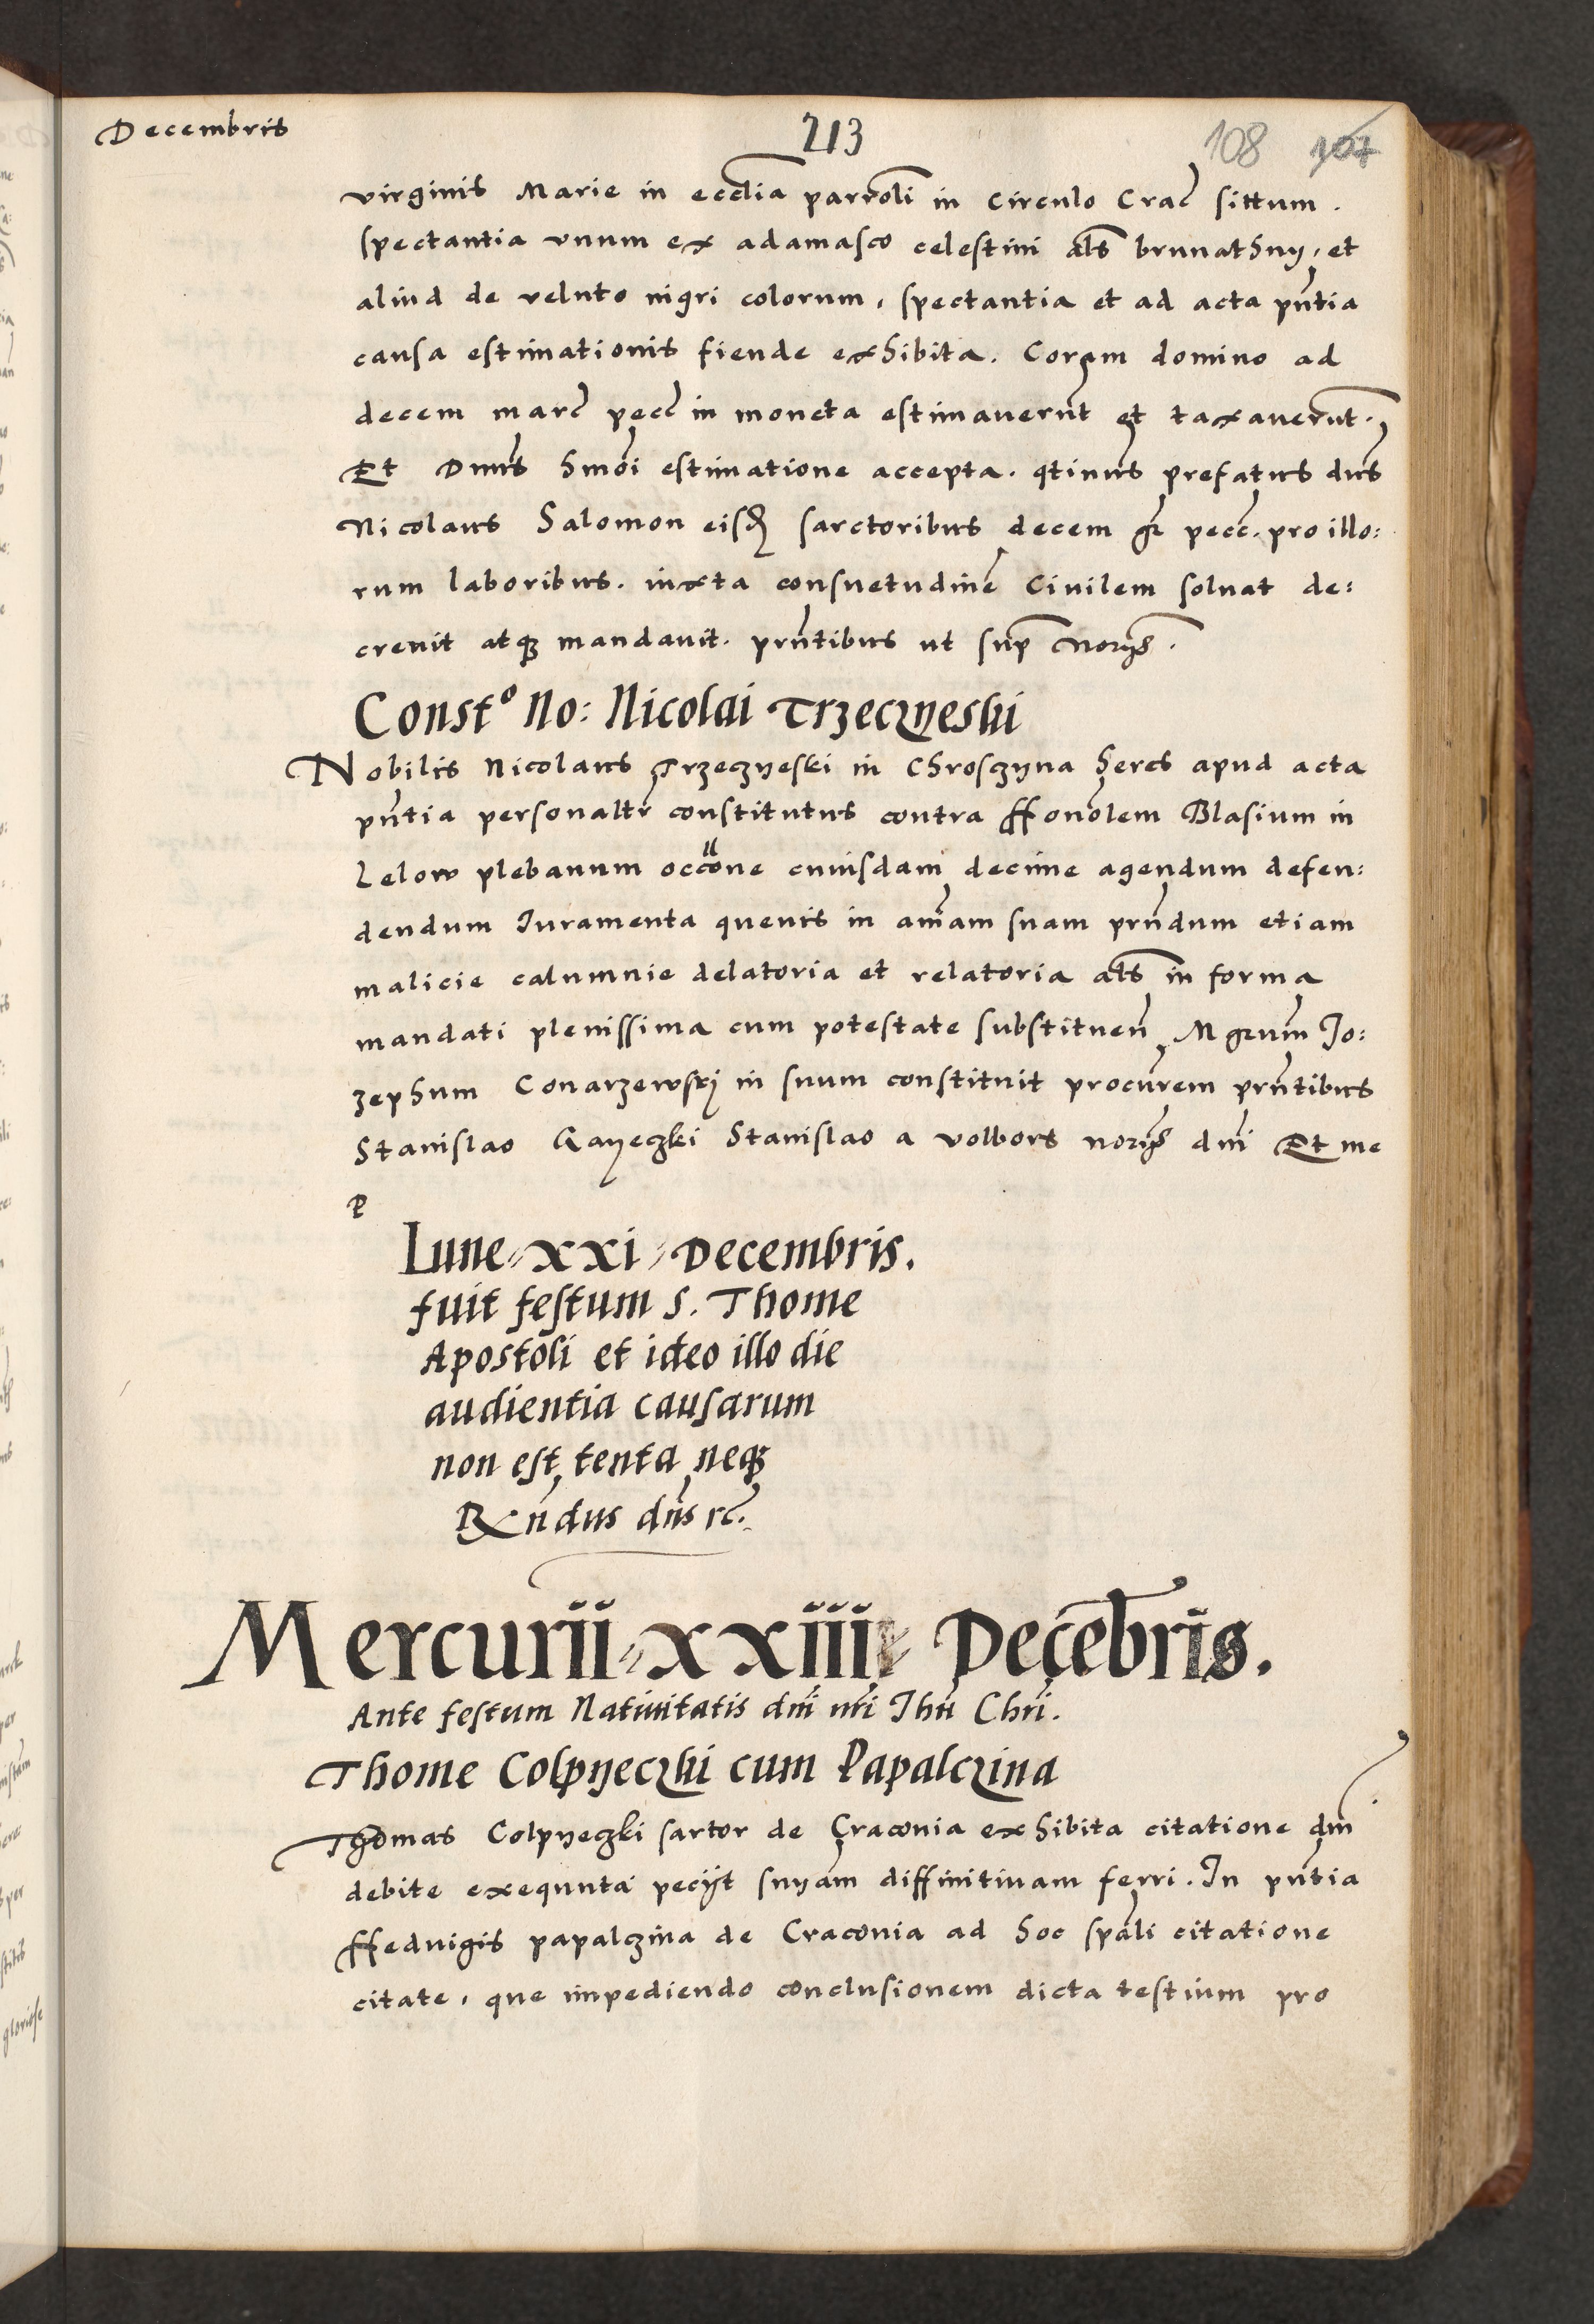 Decembris
213
108 107
virginis Marie in ecclia parroli in Circulo Crac sittum.
spectantia vnum ex adamasco celestini als brunathny, et
aliud de veluto nigri colorum, spectantia et ad acta pntia
causa estimationis fiende exhibita. Coram domino ad
decem marc pecc in moneta estimauerunt et taxauerunt.
Et Dnus hmoi estimatione accepta. qtinus prefatus dns
Nicolaus Salomon eisd sarctoribus decem gr pecc. pro illo:
rum laboribus. iuxta consuetudine Ciuilem soluat de:
creuit atq mandauit. prntibus ut sup norijs.
Const° No: Nicolai Trzeczyeski
Nobilis Nicolaus Trzeczyeski in Chrosczyna heres apud acta
pntia personaltr constitutus contra honolem Blasium in
Lelow plebanum occone cuiusdam decime agendum defen:
dendum Iuramenta queuis in amam suam prndum etiam
malicie calumnie delatoria et relatoria als in forma
mandati plenissima cum potestate substituen Mgrum Jo:
zephum Conarzewskj in suum constituit procurem prntibus
Stanislao Gayeczki Stanislao a volbors norijs dni Et me
P
Lune xxi Decembris.
fuit festum S. Thome
Apostoli et ideo illo die
audientia causarum
non est tenta neq
Rndus dns rc.
Mercurii xxiii Decebris.
Ante festum Natiuitatis dni nri Ihu Chri.
Thome Colpyeczki cum Papalczina
Thomas Colpyeczki sartor de Craconia exhibita citatione dni
debite exequuta pecijt snyam diffinitiuam ferri. In pntia
Heduigis papalczina de Craconia ad hoc spali citatione
citate, que impediendo conclusionem dicta testium pro